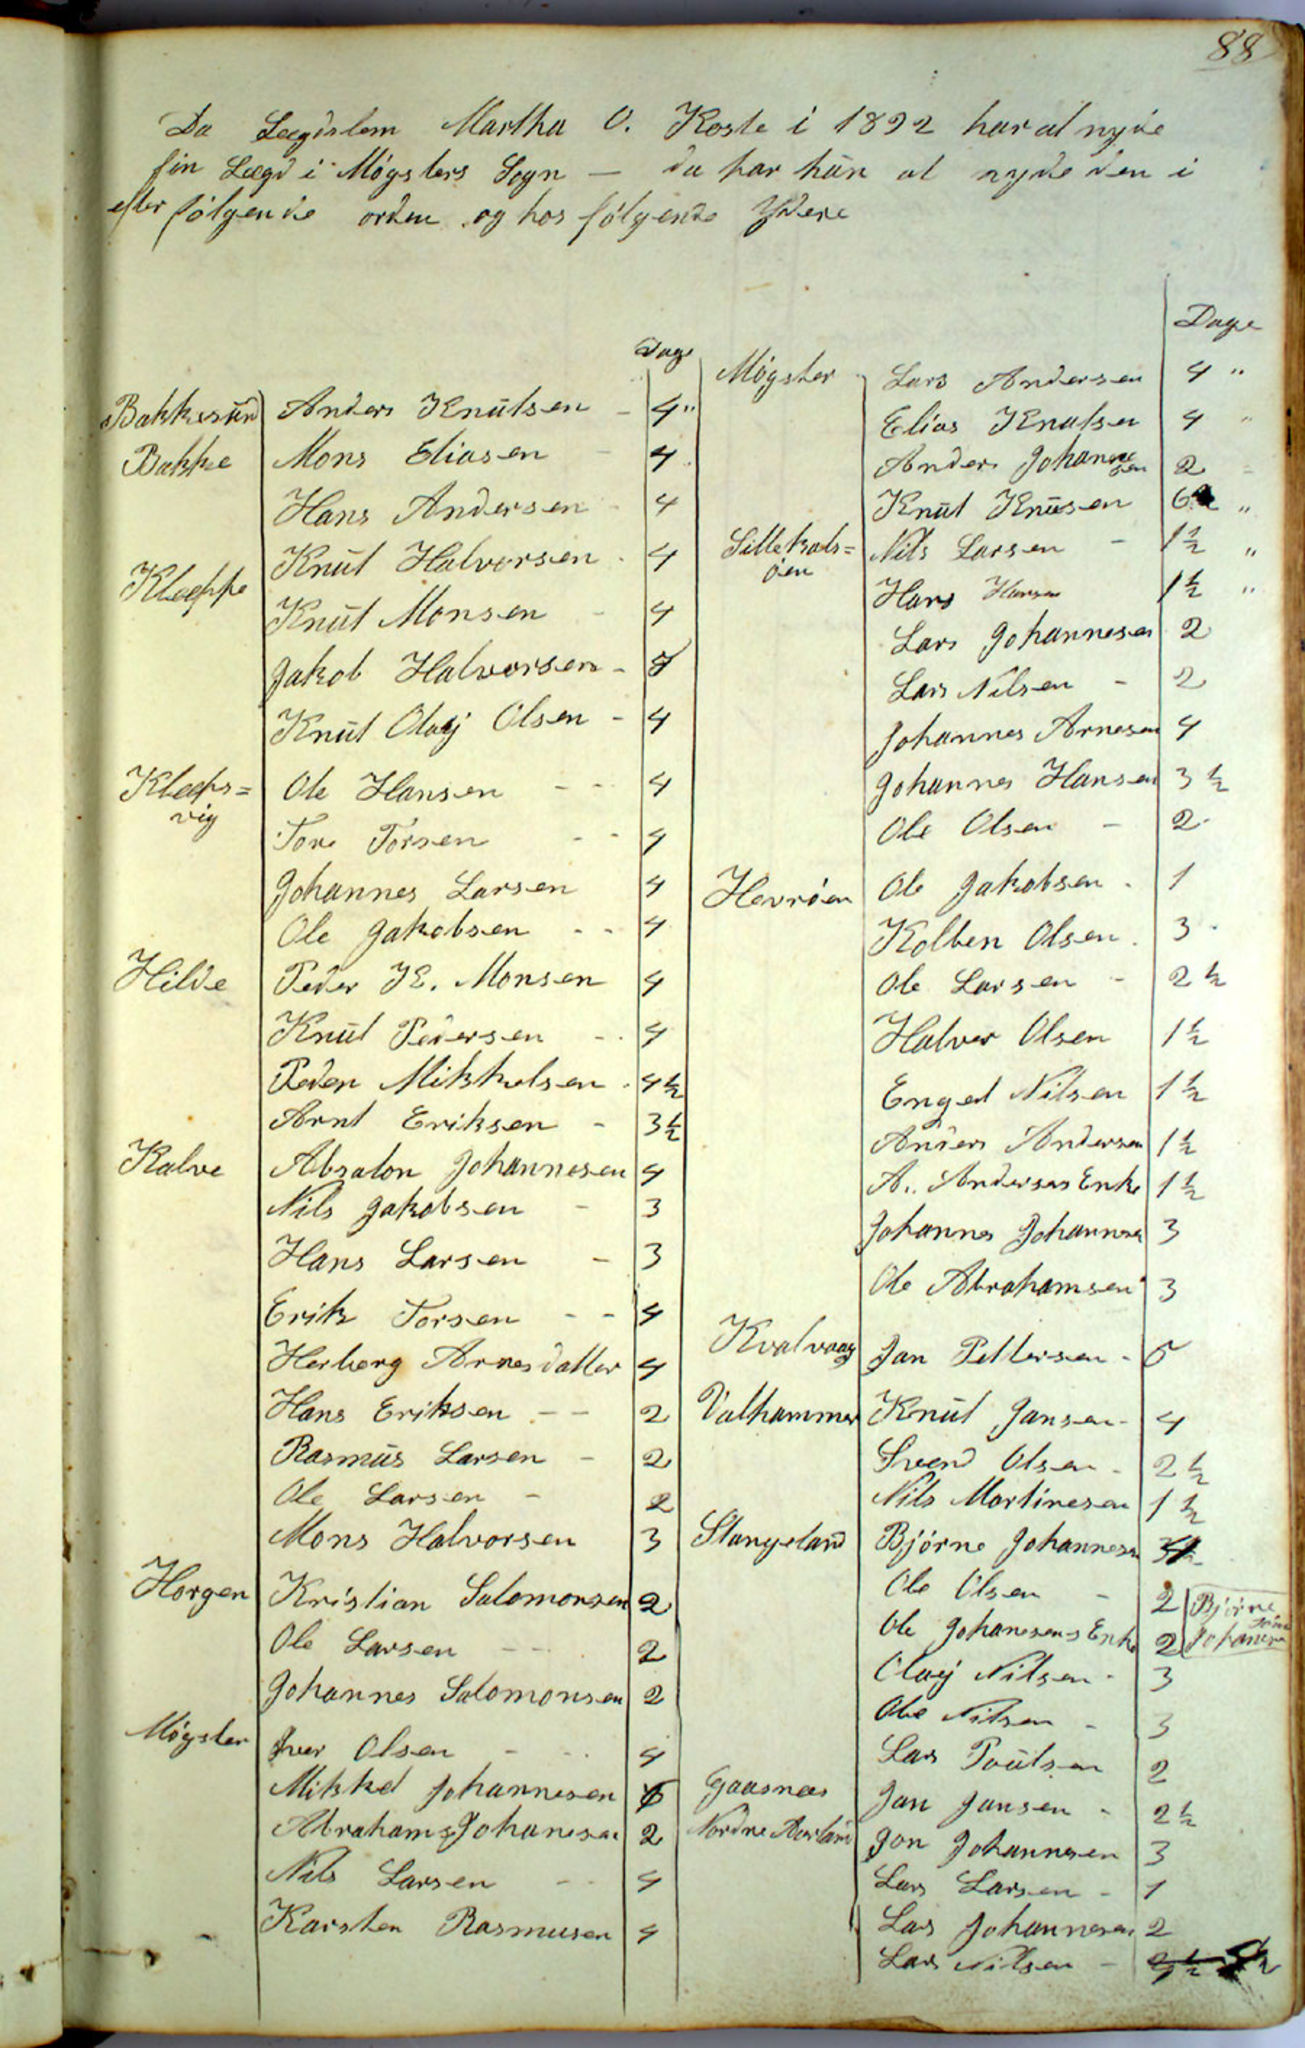 88
Da Lægdslem Martha O. Koste i 1892 har at nyde
sin Lægd i Møgsters Sogn — da har hun at nyde den i
efterfølgende orden og hos følgende Ydere
Dage
Bakkesund Anders Knutsen - 4 "
Bakke Mons Eliasen - 4
Hans Andersen - 4
Knut Halvorsen - 4
Kleppe
Knut Monsen - 4
Jakob Halvorsen -
Knut Olaj Olsen - 4
Kleps= Ole Hansen - - 4
vig
Tore Torsen - - 4
Johannes Larsen 4
Ole Jakobsen - - 4
Hilde Peder K. Monsen 4
Knut Pedersen - - 4
Peder Mikkelsen - 4 ½
Arnt Eriksen - 3 ½
Kalve Absalon Johannesen 4
Nils Jakobsen - 3
Hans Larsen - 3
Erik Torsen - - 4
Herborg Arnesdatter 4
Hans Eriksen - - 2
Rasmus Larsen - 2
Ole Larsen - 2
Mons Halvorsen 3
Horgen Kristian Salomonsen 2
Ole Larsen - - 2
Johannes Salomonsen 2
Møgster Iver Olsen - - 4
Mikkel Johannesen
Abrahams Johanesen 2
Nils Larsen - - 4
Karsten Rasmusen 4
Dage
Møgster Lars Andersen 4 "
Elias Knutsen 4 "
Anders Johannesen 2 "
Knut Knusen 6 "
Lillekals= Nils Larsen - 1 ½ "
øen
Hans Hansen 1 ½ "
Lars Johannesen 2
Lars Nilsen - 2
Johannes Arnesen 4
Johannes Hansen 3 ½
Ole Olsen - 2
Hevrøen Ole Jakobsen - 1
Kolben Olsen - 3
Ole Larsen - 2 ½
Halvor Olsen 1 ½
Engel Nilsen 1 ½
Anders Andersen 1 ½
A. Andersens Enke 1 ½
Johannes Johannesen 3
Ole Abrahamsen 3
Kvalvaag Jan Pettersen - 5
Valhammer Knut Jansen - 4
Svend Olsen - 2 ½
Nils Martinesen 1 ½
Stangeland Bjørne Johannesen
Ole Olsen - 2 Bjørne
Ole Johanesens Enke 2 Johanesen
Olaj Nilsen - 3
Ole Nilsen - 3
Lars Poulsen 2
Gaasnes Jan Jansen - 2 ½
Nordre Aorland Jon Johannesen 3
Lars Larsen - 1
Lars Johannesen 2
Lars Nilsen -